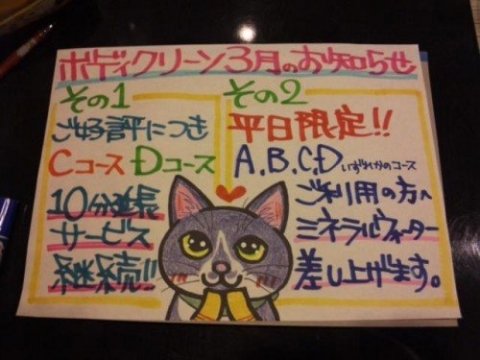 ボディクリーン3月のお知らせ
その1
ご好評につき
Cコース Dコース
10分延長
サービス
継続!!
その2
平日限定!!
A,B,C,Dいずれかのコース
ご利用の方へ
ミネラルウォーター
差し上げます。